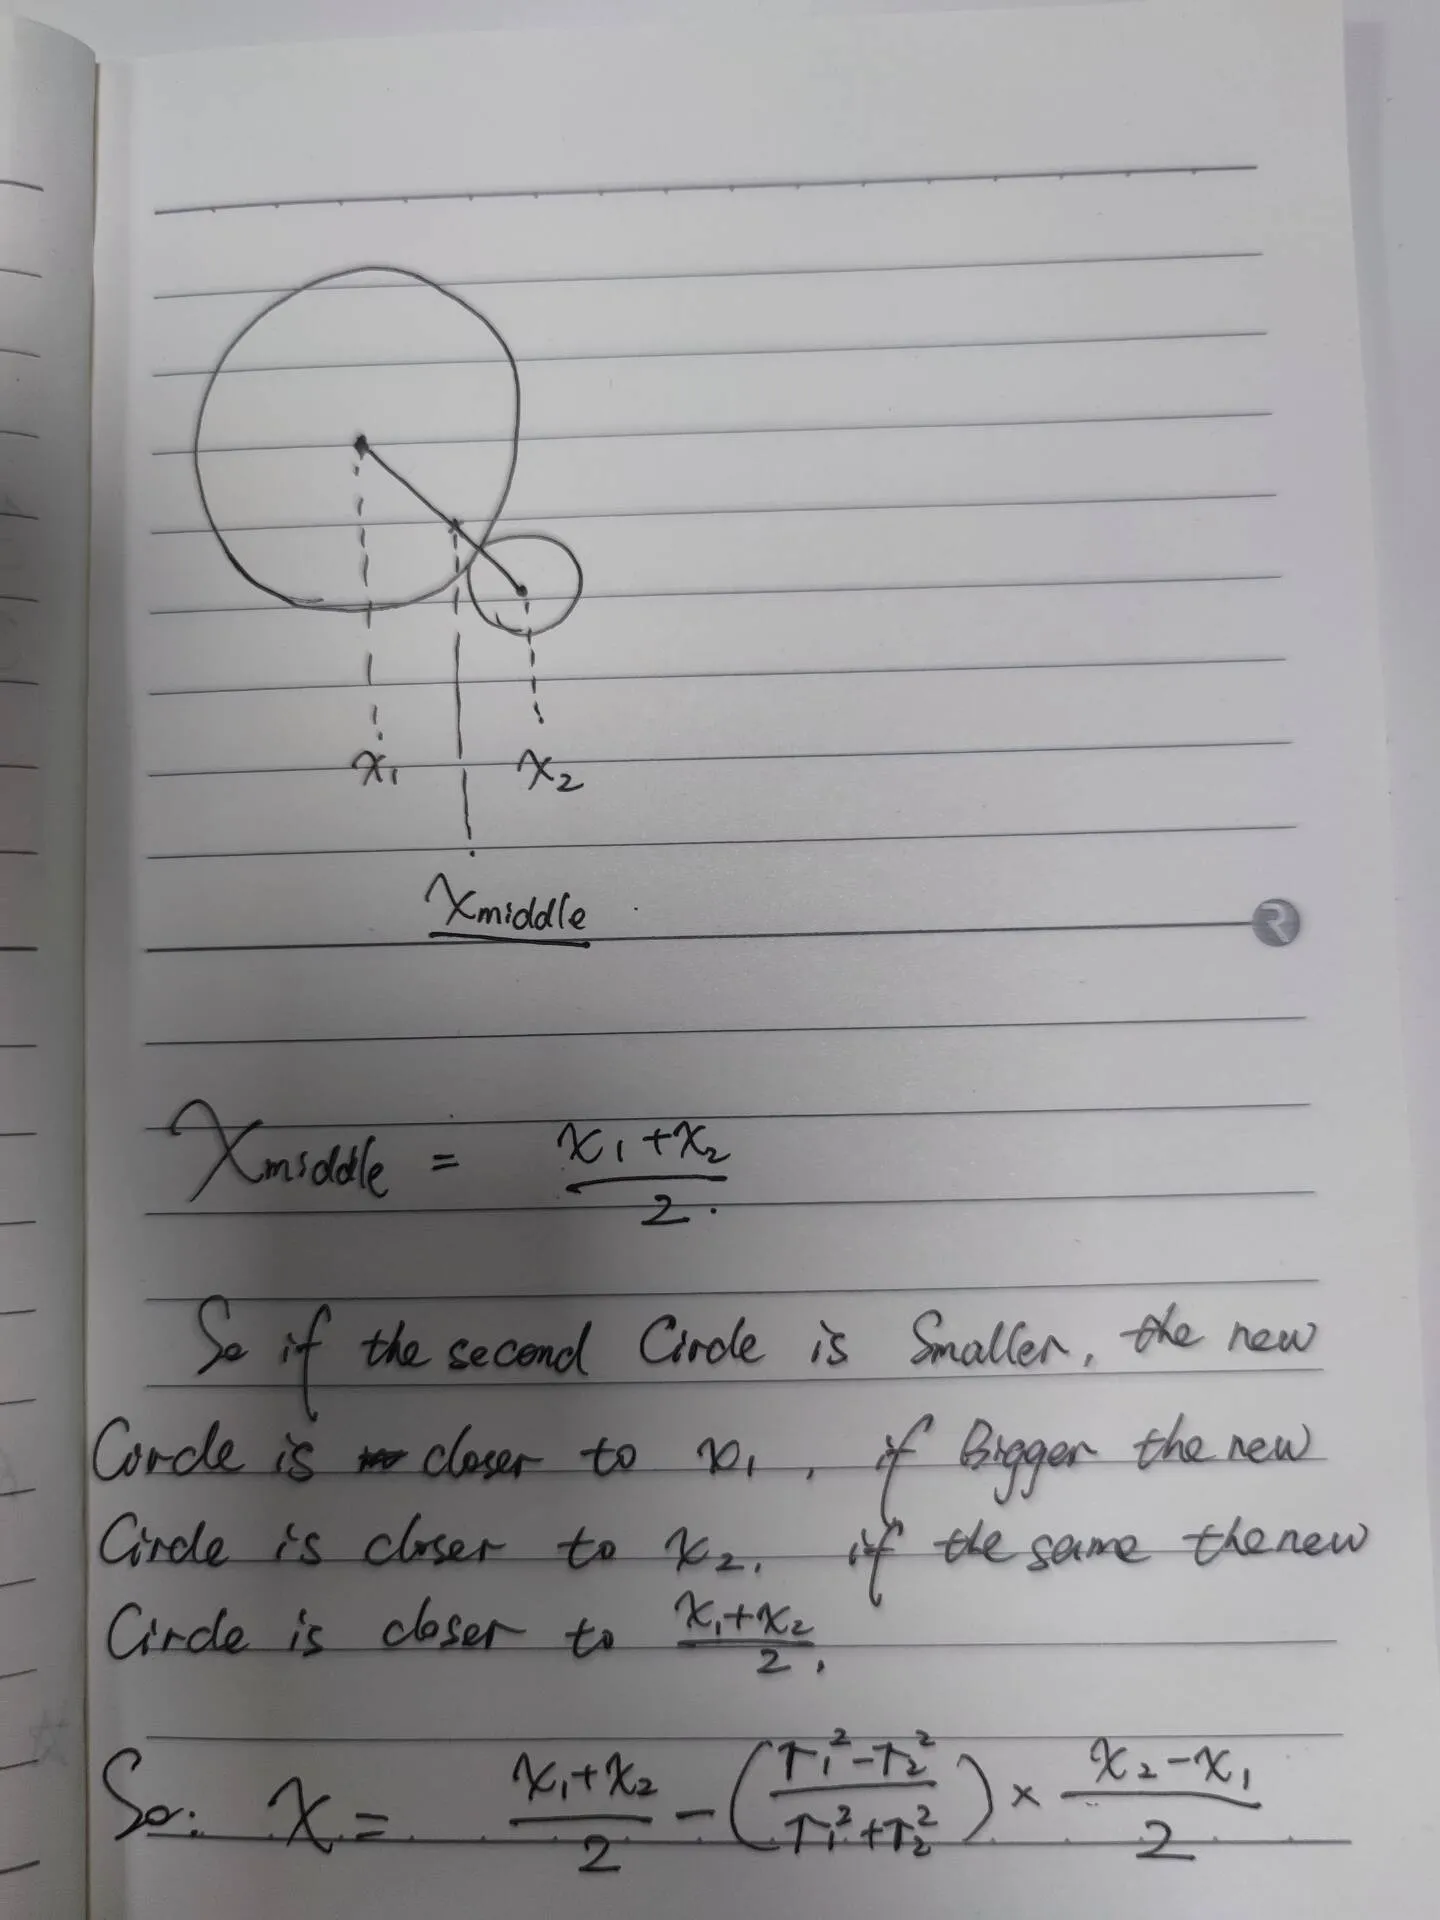 x₁
x₂
x middle
R
x middle = (x₁+x₂)/2.
So if the second Circle is Smaller, the new
Circle is closer to x₁, if Bigger the new
Circle is closer to x₂. if the same the new
Circle is closer to (x₁+x₂)/2.
So: x = (x₁+x₂)/2 − ((r₁²−r₂²)/(r₁²+r₂²)) × (x₂−x₁)/2